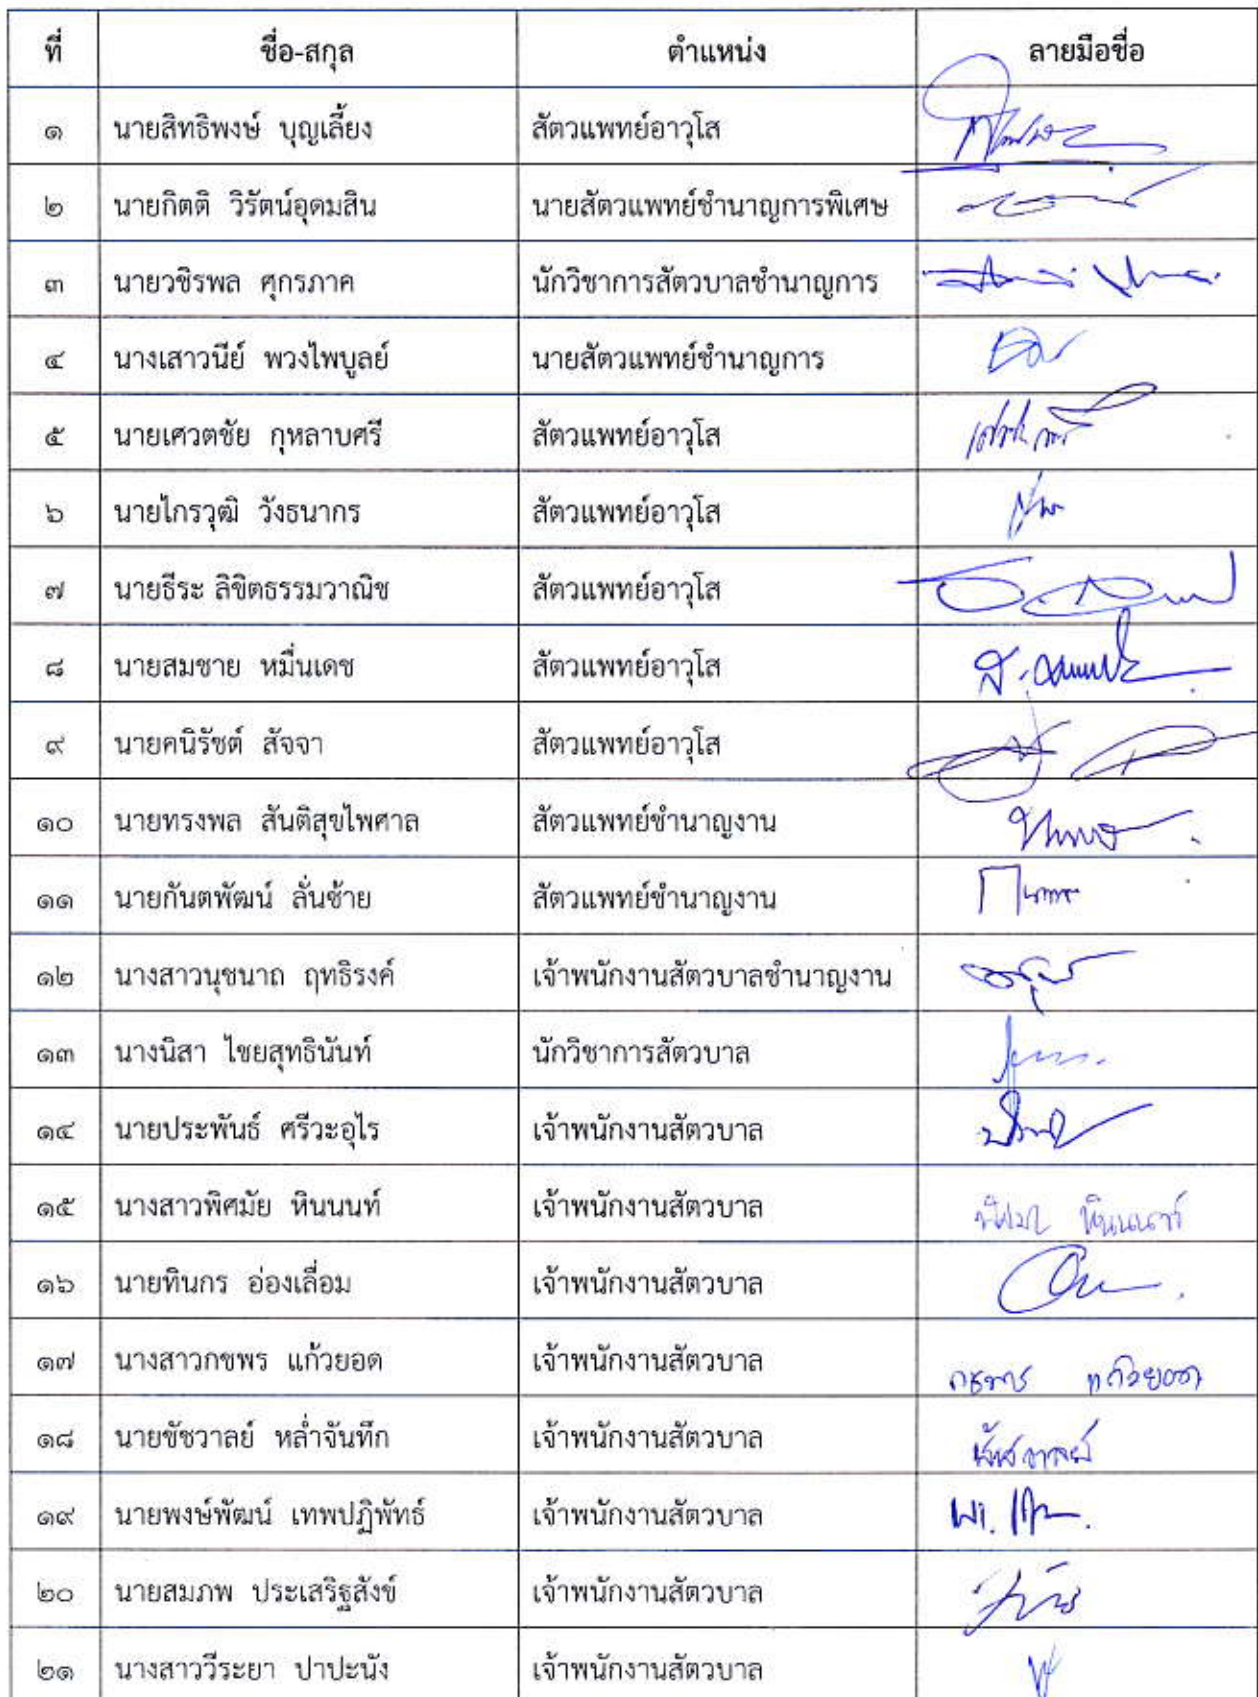 ที่ ชื่อ-สกุล ตำแหน่ง ลายมือชื่อ
๑ นายสิทธิพงษ์ บุญเลี้ยง สัตวแพทย์อาวุโส
๒ นายกิตติ วิรัตน์อุดมสิน นายสัตวแพทย์ชำนาญการพิเศษ
๓ นายวชิรพล ศุกรภาค นักวิชาการสัตวบาลชำนาญการ
๔ นางเสาวนีย์ พวงไพบูลย์ นายสัตวแพทย์ชำนาญการ
๕ นายเศวตชัย กุหลาบศรี สัตวแพทย์อาวุโส
๖ นายไกรวุฒิ วังธนากร สัตวแพทย์อาวุโส
๗ นายธีระ ลิขิตธรรมวาณิช สัตวแพทย์อาวุโส
๘ นายสมชาย หมื่นเดช สัตวแพทย์อาวุโส
๙ นายคนิรัชต์ สัจจา สัตวแพทย์อาวุโส
๑๐ นายทรงพล สันติสุขไพศาล สัตวแพทย์ชำนาญงาน
๑๑ นายกันตพัฒน์ ลั่นซ้าย สัตวแพทย์ชำนาญงาน
๑๒ นางสาวนุชนาถ ฤทธิรงค์ เจ้าพนักงานสัตวบาลชำนาญงาน
๑๓ นางนิสา ไชยสุทธินันท์ นักวิชาการสัตวบาล
๑๔ นายประพันธ์ ศรีวะอุไร เจ้าพนักงานสัตวบาล
๑๕ นางสาวพิศมัย หินนนท์ เจ้าพนักงานสัตวบาล
๑๖ นายทินกร อ่องเลื่อม เจ้าพนักงานสัตวบาล
๑๗ นางสาวกชพร แก้วยอด เจ้าพนักงานสัตวบาล กชพร แก้วยอด
๑๘ นายชัชวาลย์ หล่ำจันทึก เจ้าพนักงานสัตวบาล ชัชวาลย์
๑๙ นายพงษ์พัฒน์ เทพปฏิพัทธ์ เจ้าพนักงานสัตวบาล
๒๐ นายสมภพ ประเสริฐสังข์ เจ้าพนักงานสัตวบาล
๒๑ นางสาววีระยา ปาปะนัง เจ้าพนักงานสัตวบาล